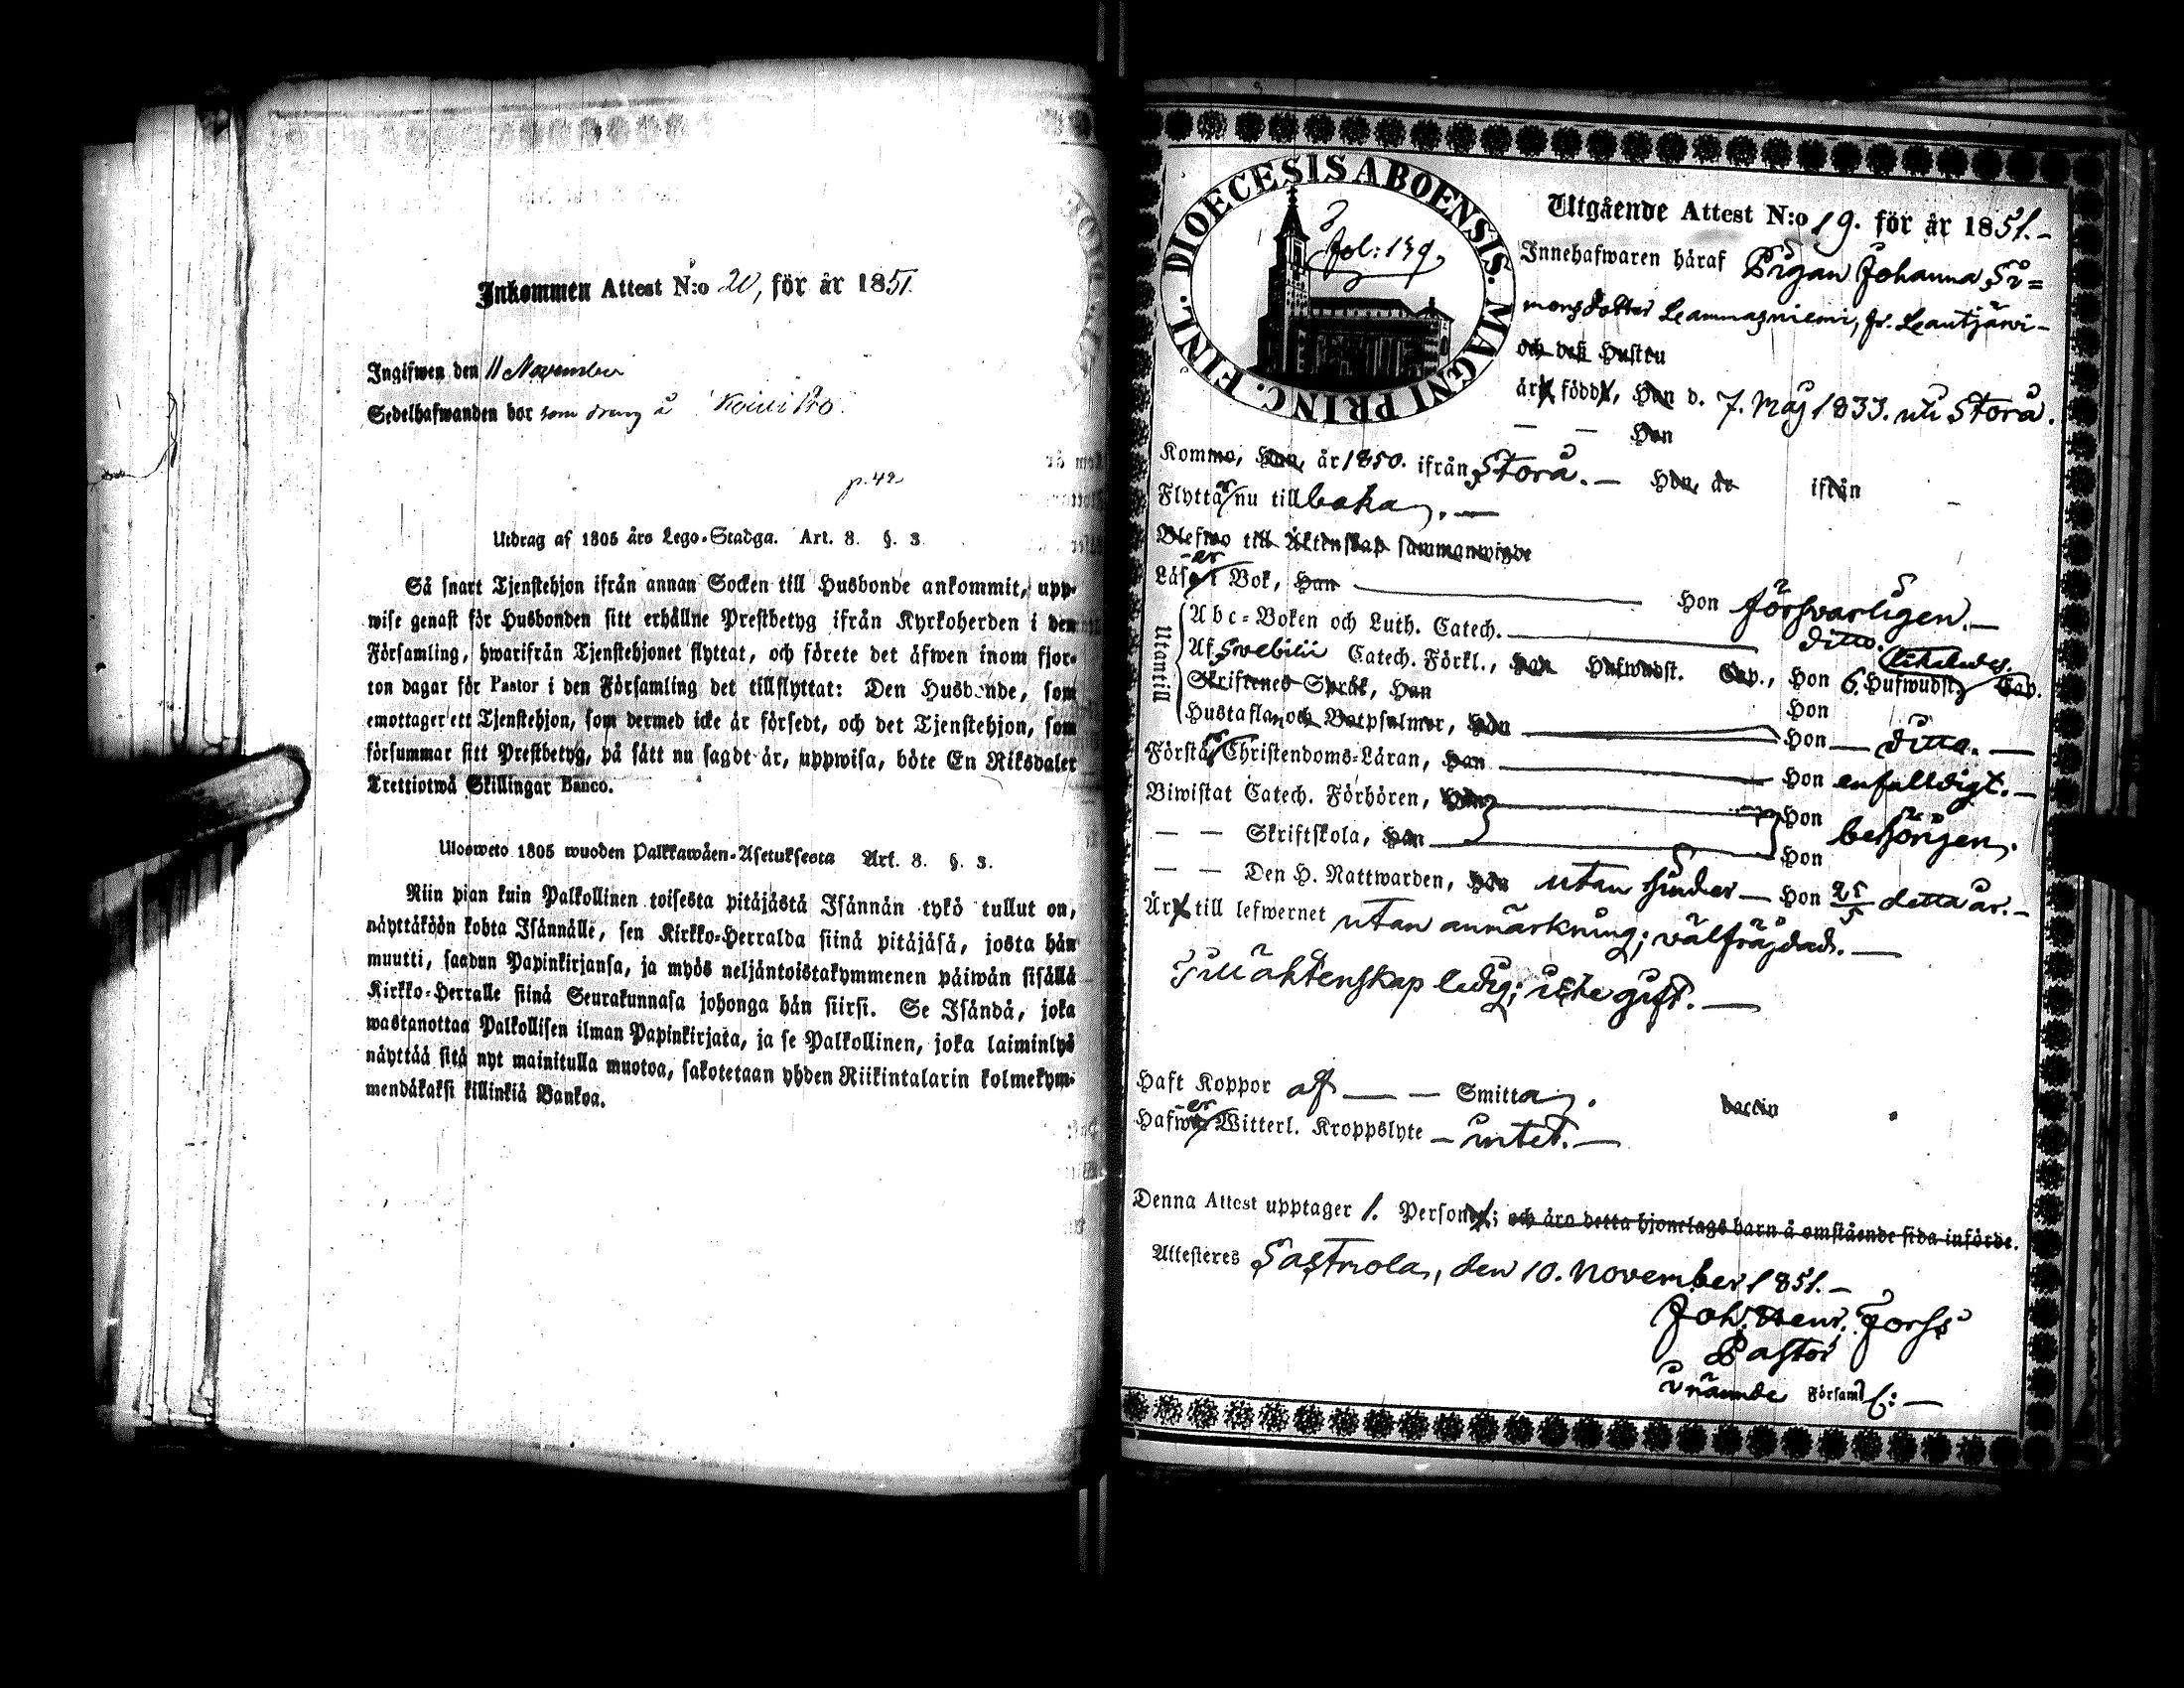 Inkommen Attest N:o 20, för år 1851.
Ingifwen den 11 November
Sedelhafwanden bor som dräng å
p. 42
Utdrag af 1805 års Lego-Stadga. Art. 8. §. 3
Så snart Tjenstehjon ifrån annan Socken till Husbonde ankommit, upp-
wise genast för Husbonden sitt erhållne Prestbetyg ifrån Kyrkoherden i den
Församling, hwarifrån Tjenstehjonet flyttat, och förete det äfwen inom fjor-
ton dagar för Pastor i den Församling det tillflyttat: Den Husbonde, som
emottager ett Tjenstehjon, som dermed icke är försedt, och det Tjenstehjon, som
försummar sitt Prestbetyg, på sätt nu sagdt är, uppwisa, böte En Riksdaler
Trettiotwå Skillingar Banco.
Ulosweto 1805 wuoden Palkkawäen-Asetuksesta Art. 8. §. 3.
Niin pian kuin Palkollinen toisesta pitäjästä Isännän tykö tullut on,
näyttäköön kohta Isännälle, sen Kirkko-Herralda siinä pitäjäsä, josta hän
muutti, saadun Papinkirjansa, ja myös neljäntoistakymmenen päiwän sisällä
Kirkko-Herralle siinä Seurakunnasa johonga hän siirsi. Se Isändä, joka
wastanottaa Palkollisen ilman Papinkirjata, ja se Palkollinen, joka laiminlyö
näyttää sitä nyt mainitulla muotoa, sakotetaan yhden Riikintalarin kolmekym-
mendäkaksi killinkiä Bankoa.
DIOECESIS ABOENSIS. MAGNI PRINC. FINL.
Fol: 139.
Utgående Attest N:o 19. för år 1851.-
Innehafwaren häraf Pigan Johanna Si=
monsdotter Leammasniemi, fr. Leautjärwi-
och dess Hustru
är född, Han d. 7. Maj 1833. uti Storå.
— — Hon
Komme, Han, år 1850. ifrån Storå. — Hon, år ifrån
Flyttar nu tillbaka. —
Blefwo till Äktenskap sammanwigde
Läser i Bok, Han — Hon försvarligen. —
Utantill
Abc-Boken och Luth. Catech. — ditto.
Af Svebilii Catech. Förkl., Han Hufwudst. Cap., Hon 6. Hufwudst. Cap.
Skriftenes Språk, Han Hon
Hustaflan och Botpsalmer, Han — Hon — ditto. —
Förstår Christendoms-Läran, Han — Hon enfaldigt. —
Biwistat Catech. Förhören, Han — Hon behörigen.
— — Skriftskola, Han — Hon
— — Den H. Nattwarden, Han utan hinder — Hon 25/5 detta år. —
Är till lefwernet utan anmärkning; välfräjdad. —
Till äktenskap ledig; icke gift. —
Haft Koppor af — — Smitta.
Hafwer Witterl. Kroppslyte — intet. —
Denna Attest upptager 1. Person; och äro detta hjonelags barn å omstående sida införde.
Attesteres Sastmola, den 10. November 1851. —
Joh. Henr. Forss
Pastor
i nämnde Förseml: